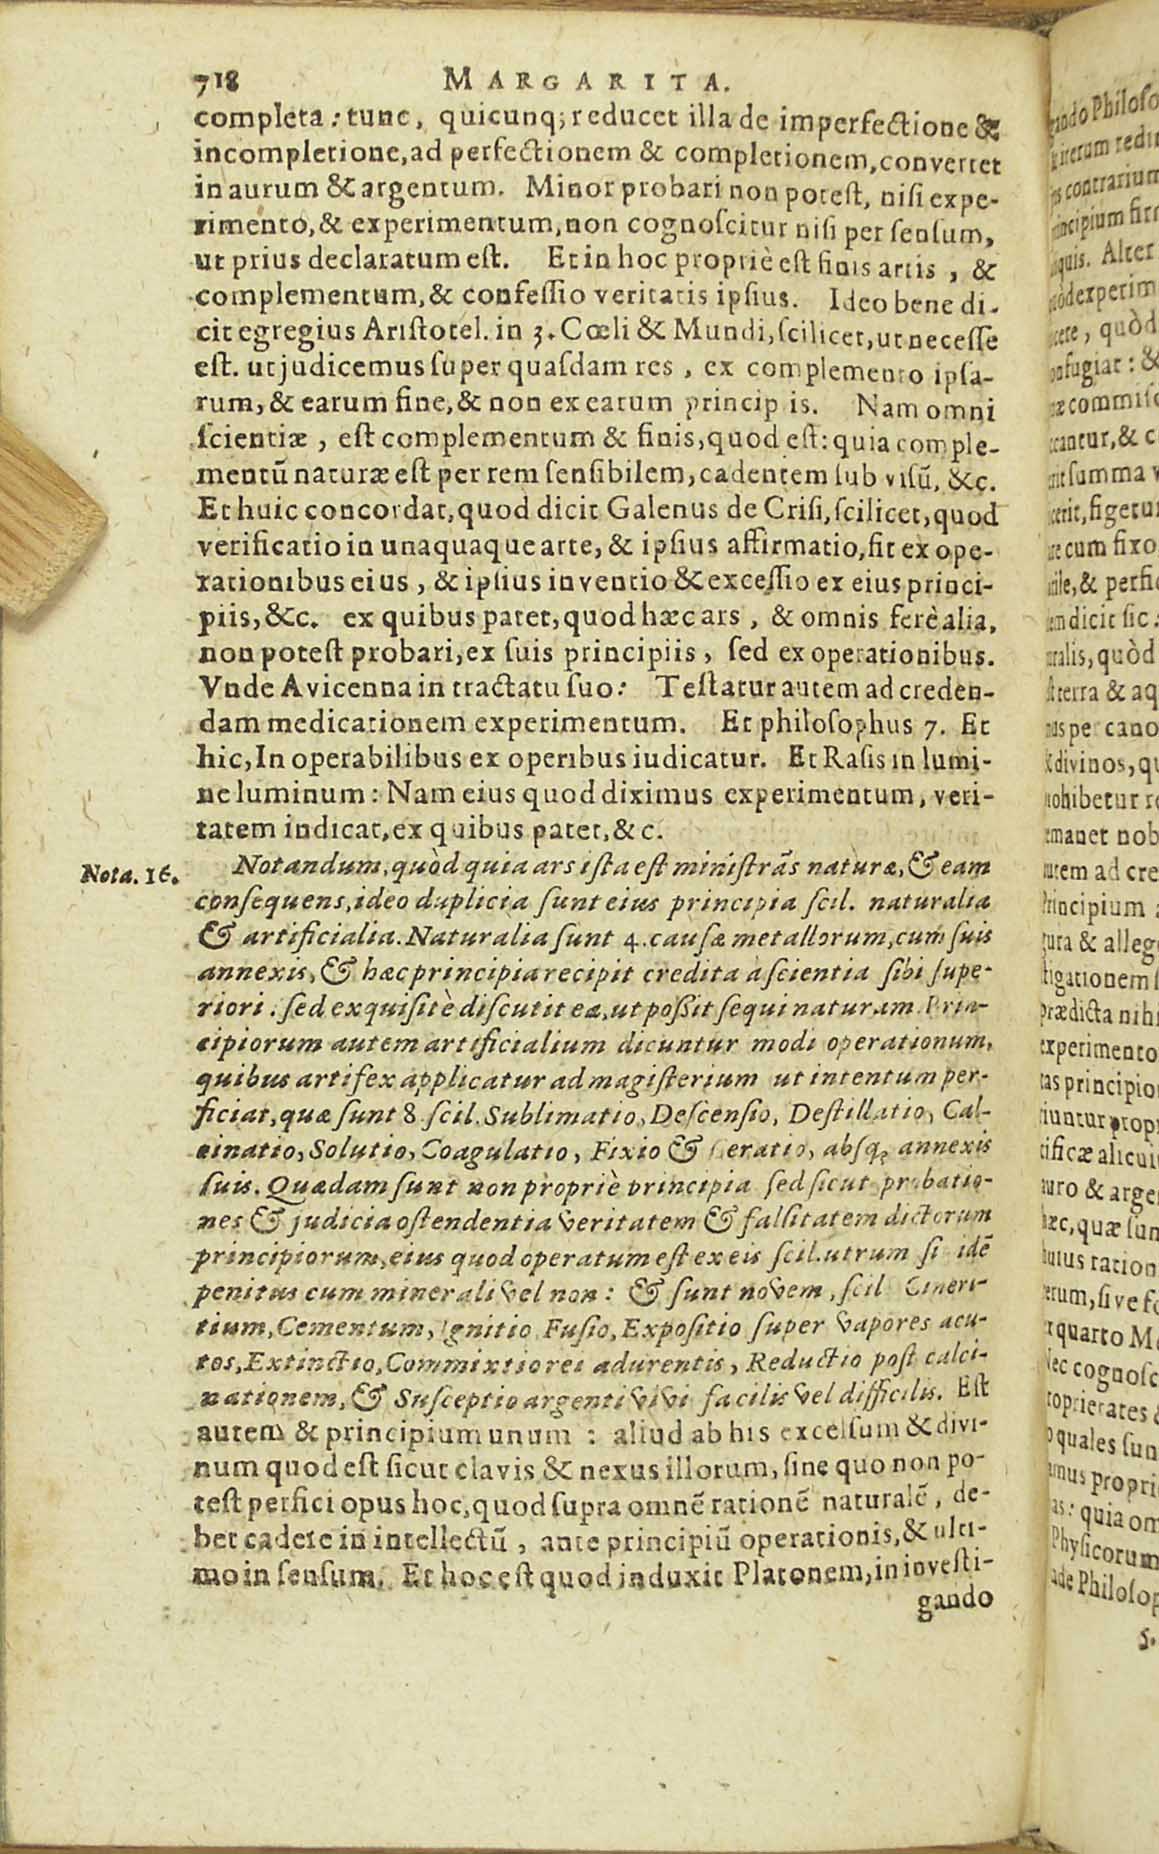 718 MARGARITA.
completa: tunc, quicunq; reducet illa de imperfectione &
incompletione, ad perfectionem & completionem, convertet
in aurum & argentum. Minor probari non potest, nisi expe-
rimento, & experimentum, non cognoscitur nisi per sensum,
ut prius declaratum est. Et in hoc propriè est finis artis, &
complementum, & confessio veritatis ipsius. Ideo bene di-
cit egregius Aristotel. in 3. Cœli & Mundi, scilicet, ut necesse
est. ut judicemus super quasdam res, ex complemento ipsa-
rum, & earum fine, & non ex earum principiis. Nam omni
scientiæ, est complementum & finis, quod est: quia comple-
mentũ naturæ est per rem sensibilem, cadentem sub visũ, &c.
Et huic concordat, quod dicit Galenus de Crisi, scilicet, quod
verificatio in unaquaque arte, & ipsius affirmatio, fit ex ope-
rationibus eius, & ipsius inventio & excessio ex eius princi-
piis, &c. ex quibus patet, quod hæc ars, & omnis ferè alia,
non potest probari, ex suis principiis, sed ex operationibus.
Vnde Avicenna in tractatu suo: Testatur autem ad creden-
dam medicationem experimentum. Et philosophus 7. Et
hic, In operabilibus ex operibus iudicatur. Et Rasis in lumi-
ne luminum: Nam eius quod diximus experimentum, veri-
tatem indicat, ex quibus patet, &c.
Nota. 16. Notandum, quòd quia ars ista est ministrãs naturæ, & eam
consequens, ideo duplicia sunt eius principia scil. naturalia
& artificialia. Naturalia sunt 4. causæ metallorum, cum suis
annexis, & hæc principia recipit credita à scientia sibi supe-
riori: sed exquisitè discutit ea, ut possit sequi naturam. Prin-
cipiorum autem artificialium dicuntur modi operationum,
quibus artifex applicatur ad magisterium ut intentum per-
ficiat, quæ sunt 8. scil. Sublimatio, Descensio, Destillatio, Cal-
cinatio, Solutio, Coagulatio, Fixio & Ceratio, absq; annexis
suis. Quædam sunt non propriè principia sed sicut probatio-
nes & judicia ostendentia veritatem & falsitatem dictorum
principiorum, eius quod operatum est ex eis scil. utrum si idẽ
penitus cum minerali vel non: & sunt novem, scil Cineri-
tium, Cementum, Ignitio, Fusio, Expositio super vapores acu-
tos, Extinctio, Commixtio rei adurentis, Reductio post calci-
nationem, & Susceptio argenti vivi facilis vel difficilis. Est
autem & principium unum: aliud ab his excelsum & divi-
num quod est sicut clavis & nexus illorum, sine quo non po-
test perfici opus hoc, quod supra omnẽ rationẽ naturalẽ, de-
bet cadere in intellectũ, ante principiũ operationis, & ulti-
mo in sensum. Et hoc est quod induxit Platonem, in investi-
gando
gando Philoso
iterum redu
contrarium
principium fit
quis. Alter
quòd experim
, quòd
confugiat: &
commisc
cantur, & c
summa v
, figetur
cum fixo
, & perfic
dicit sic:
ralis, quòd
terra & aq
per cano
divinos, qu
prohibetur
emanet nob
autem ad cre
Principium
tura & alleg
prædicta nihi
experimento
tas principio
tificæ alicui
auro & arge
hæc, quæ sun
huius ration
, sive fo
quarto M
Nec cognosc
proprietates
quales sun
propri
: quia om
Physicorum
Philosop
5.